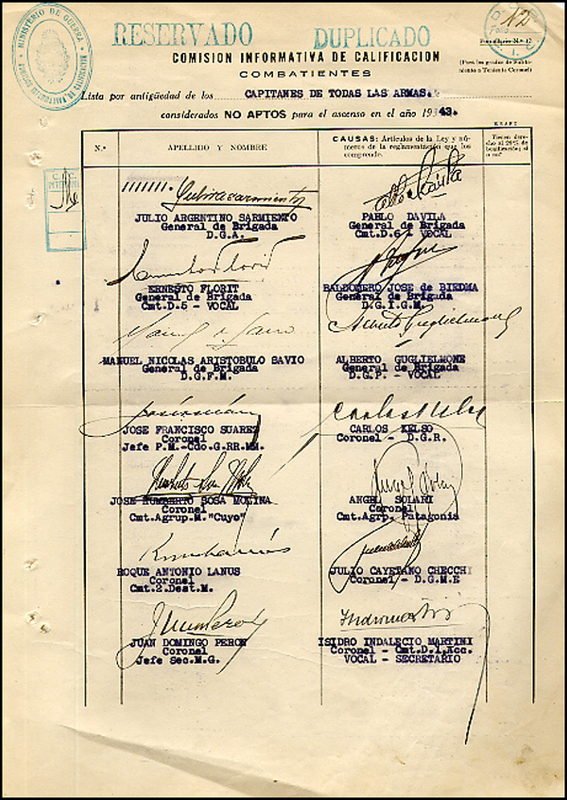 MINISTERIO DE GUERRA
RESERVADO DUPLICADO
12
COMISION INFORMATIVA DE CALIFICACION
COMBATIENTES
Formulario N.° 17
(Para los grados de Subteniente a Teniente Coronel)
Lista por antigüedad de los CAPITANES DE TODAS LAS ARMAS.
considerados NO APTOS para el ascenso en el año 1943.
N.°
APELLIDO Y NOMBRE
CAUSAS: Artículos de la Ley y números de la reglamentación que los comprende.
JULIO ARGENTINO SARMIENTO
General de Brigada
D.G.A.
PABLO DAVILA
General de Brigada
Cmt.D.6 - VOCAL
ERNESTO FLORIT
General de Brigada
Cmt.D.5 - VOCAL
BALDOMERO JOSE de BIEDMA
General de Brigada
D.G.I.G.M.
MANUEL NICOLAS ARISTOBULO SAVIO
General de Brigada
D.G.F.M.
ALBERTO GUGLIELMONE
General de Brigada
D.G.P. - VOCAL
JOSE FRANCISCO SUAREZ
Coronel
Jefe P.M.-Cdo.G.RR.MM.
CARLOS KELSO
Coronel - D.G.R.
JOSE HUMBERTO SOSA MOLINA
Coronel
Cmt.Agrup.M."Cuyo"
ANGEL SOLARI
Coronel
Cmt.Agrp. Patagonia
ROQUE ANTONIO LANUS
Coronel
Cmt.2.Dest.M.
JULIO CAYETANO CHECCHI
Coronel - D.G.M.E
JUAN DOMINGO PERON
Coronel
Jefe Sec.M.G.
ISIDRO INDALECIO MARTINI
Coronel - Cmt.D.1.Acc.
VOCAL - SECRETARIO